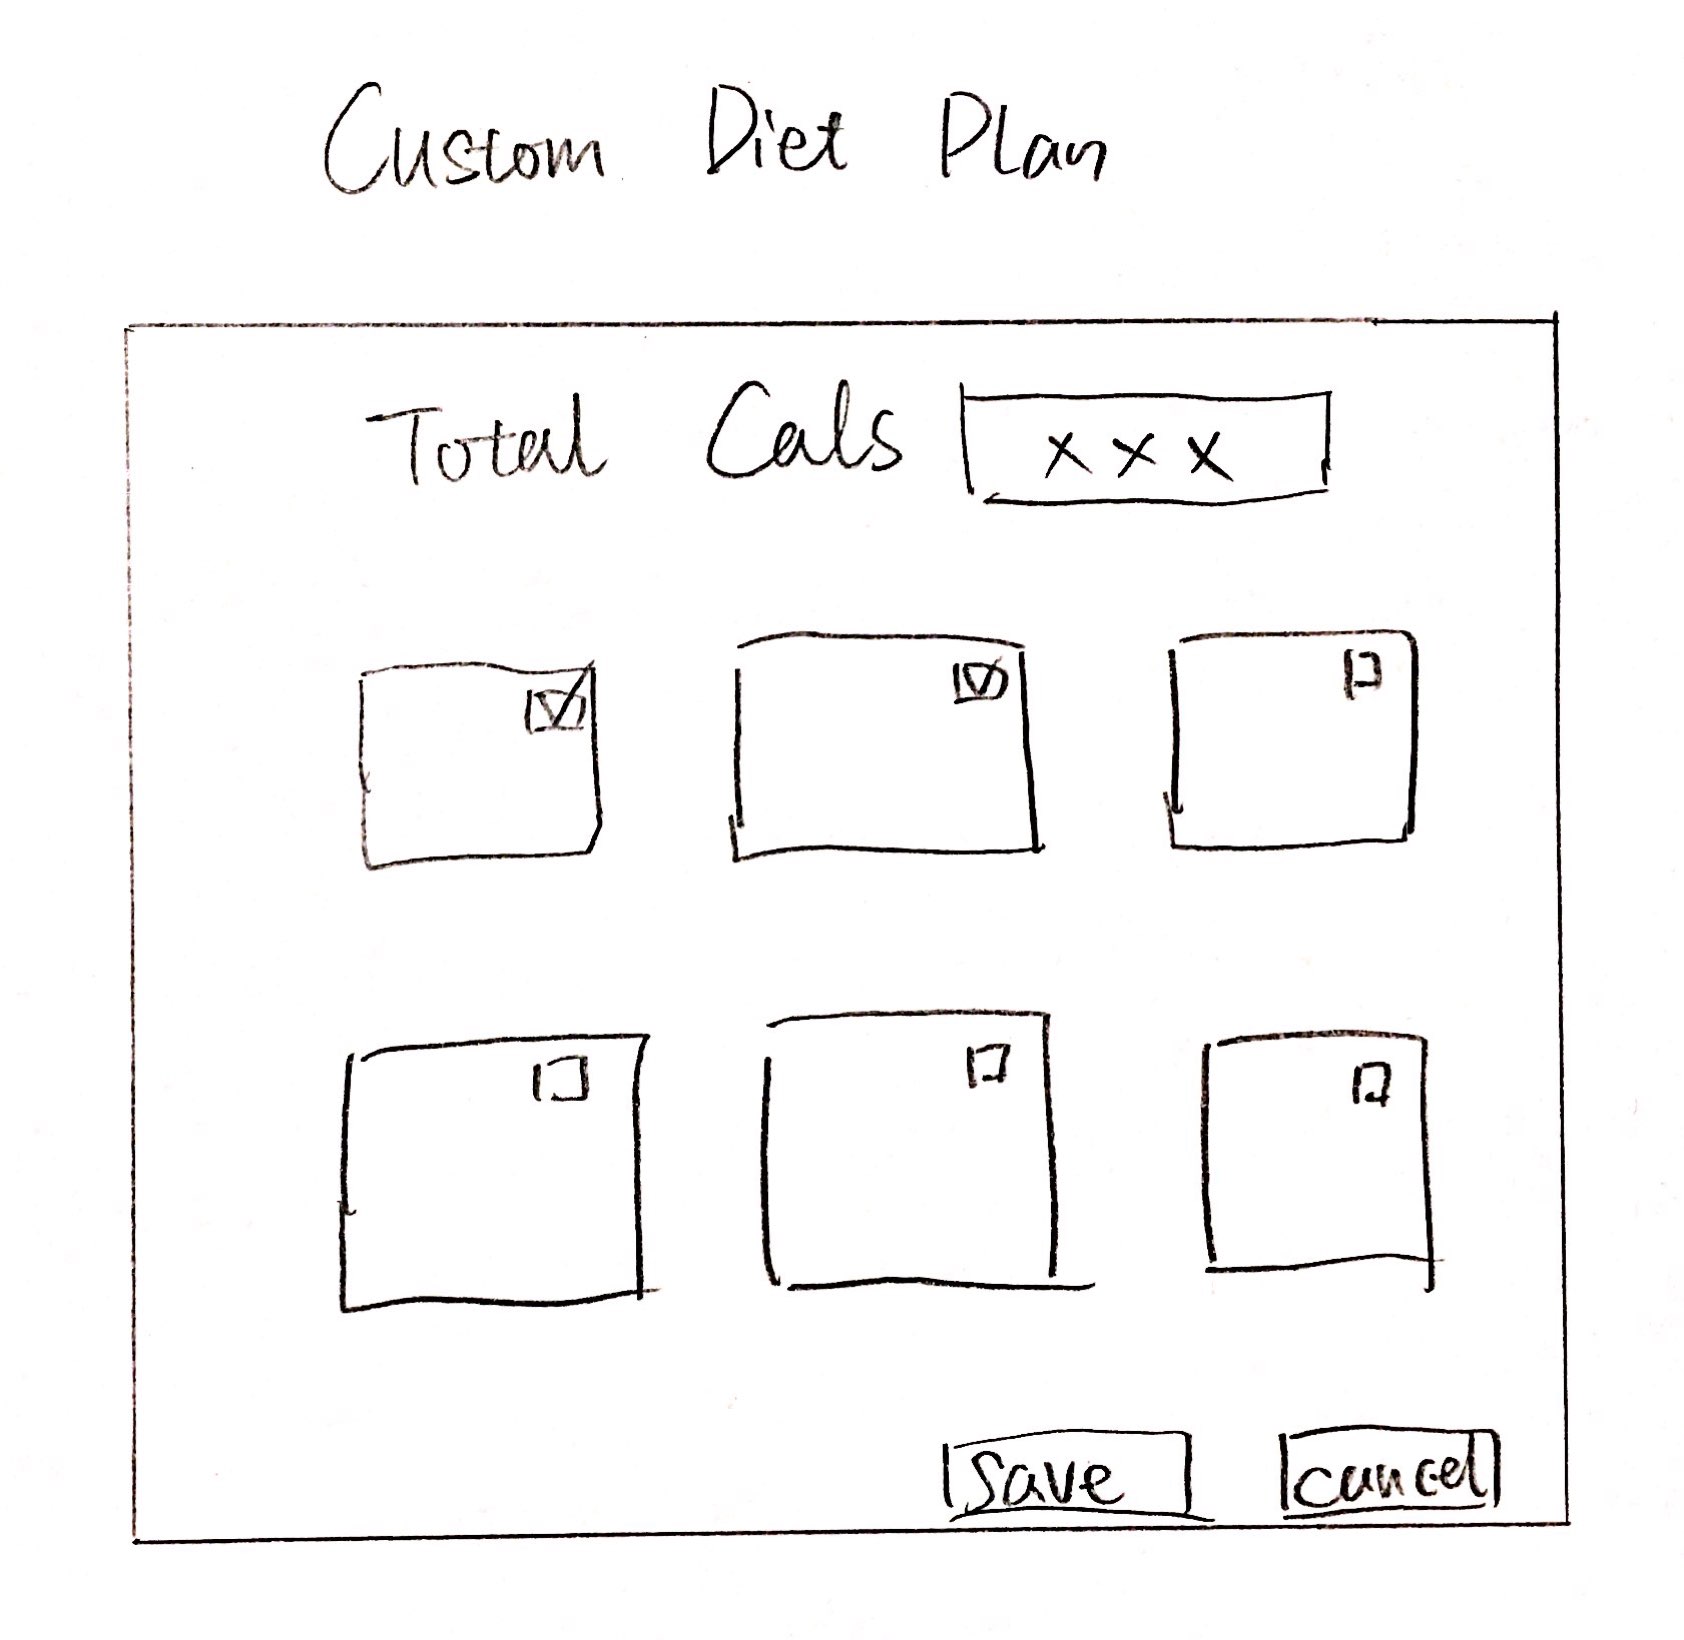 Custom Diet Plan
Total Cals xxx
save cancel